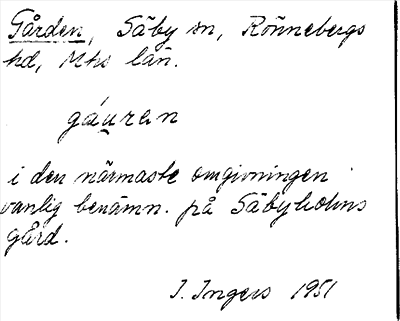 Gården, Säby sn, Rönnebergs
hd, Mhs län.
gáuran
i den närmaste omgivningen
vanlig benämn. på Säbyholms
gård.
I. Ingers 1951